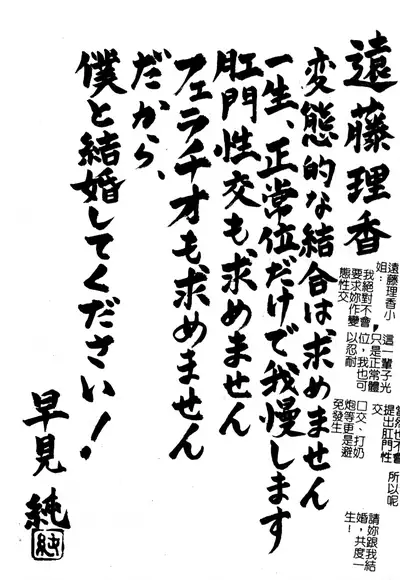 遠藤理香
変態的な結合は、求めません
一生、正常位だけで我慢します
肛門性交も、求めません
フェラチオも、求めません
だから、
僕と結婚してください！
早見 純
純
遠藤理香小
姐：
我絕對不會
要求妳作變
態性交，
這一輩子光
只是正常體
位，我也可
以忍耐
當然也不會
提出肛門性
交
口交、打奶
炮等更是避
免發生
所以呢
請妳跟我結
婚，共度一
生！